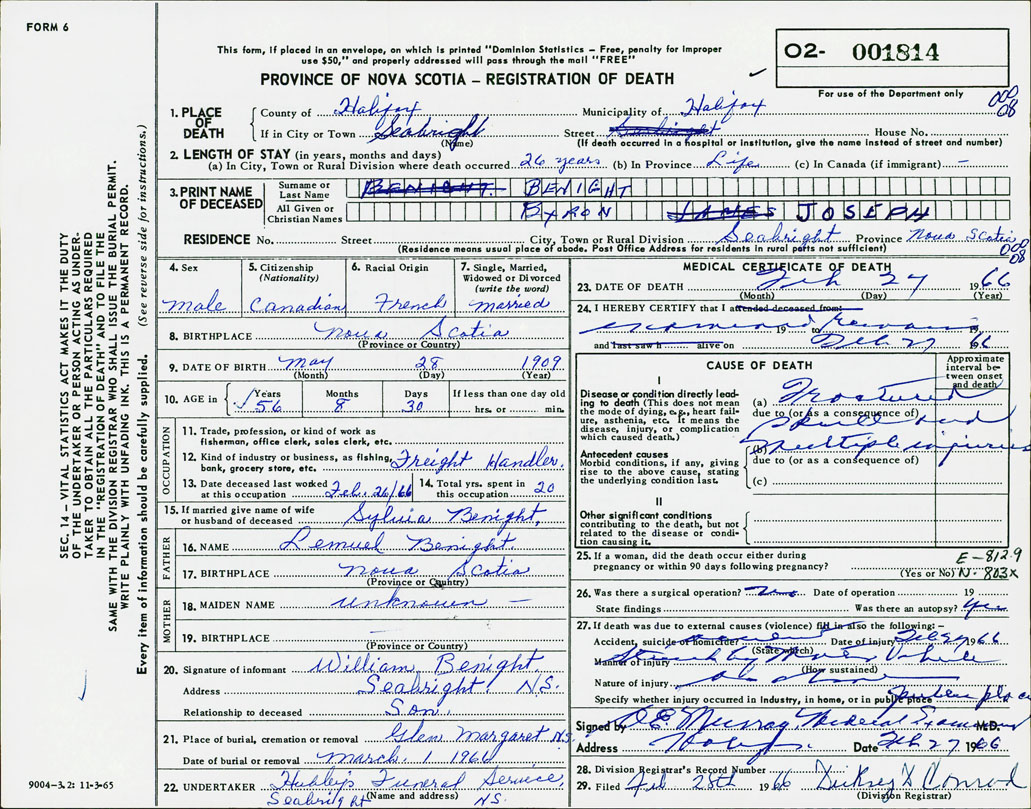 FORM 6
This form, if placed in an envelope, on which is printed "Dominion Statistics – Free, penalty for improper
use $50," and properly addressed will pass through the mail "FREE"
PROVINCE OF NOVA SCOTIA – REGISTRATION OF DEATH
O2- 001814
For use of the Department only
000
08
SEC. 14 – VITAL STATISTICS ACT MAKES IT THE DUTY
OF THE UNDERTAKER OR PERSON ACTING AS UNDER-
TAKER TO OBTAIN ALL THE PARTICULARS REQUIRED
IN THE "REGISTRATION OF DEATH" AND TO FILE THE
SAME WITH THE DIVISION REGISTRAR WHO SHALL ISSUE THE BURIAL PERMIT.
WRITE PLAINLY WITH UNFADING INK. THIS IS A PERMANENT RECORD.
Every item of information should be carefully supplied. (See reverse side for instructions.)
1. PLACE OF DEATH
County of Halifax Municipality of Halifax
If in City or Town Seabright Street Seabright House No.
(Name) (If death occurred in a hospital or institution, give the name instead of street and number)
2. LENGTH OF STAY (in years, months and days)
(a) In City, Town or Rural Division where death occurred 26 years (b) In Province Life (c) In Canada (if immigrant) –
3. PRINT NAME OF DECEASED
Surname or Last Name BENIGHT BENIGHT
All Given or Christian Names BYRON JAMES JOSEPH
RESIDENCE No. Street City, Town or Rural Division Seabright Province Nova Scotia
(Residence means usual place of abode. Post Office Address for residents in rural parts not sufficient)
000
08
4. Sex Male
5. Citizenship (Nationality) Canadian
6. Racial Origin French
7. Single, Married, Widowed or Divorced (write the word) Married
8. BIRTHPLACE Nova Scotia
(Province or Country)
9. DATE OF BIRTH May 28 1909
(Month) (Day) (Year)
10. AGE in Years 56 Months 8 Days 30 If less than one day old hrs. or min.
OCCUPATION
11. Trade, profession, or kind of work as
fisherman, office clerk, sales clerk, etc.
12. Kind of industry or business, as fishing,
bank, grocery store, etc. Freight Handler.
13. Date deceased last worked
at this occupation Feb. 26/66
14. Total yrs. spent in
this occupation 20
15. If married give name of wife
or husband of deceased Sylvia Benight,
FATHER
16. NAME Lemuel Benight.
17. BIRTHPLACE Nova Scotia
(Province or Country)
MOTHER
18. MAIDEN NAME unknown –
19. BIRTHPLACE –
(Province or Country)
20. Signature of informant William Benight
Address Seabright. N.S.
Relationship to deceased Son.
21. Place of burial, cremation or removal Glen Margaret N.S.
Date of burial or removal March 1 1966
22. UNDERTAKER Hubley's Funeral Service,
Seabright (Name and address) N.S.
9004-3.2: 11-3-65
MEDICAL CERTIFICATE OF DEATH
23. DATE OF DEATH Feb 27 1966
(Month) (Day) (Year)
24. I HEREBY CERTIFY that I attended deceased from:
examined remains 19 to 19
and last saw h alive on Feb 27 1966
CAUSE OF DEATH
Approximate interval between onset and death
I
Disease or condition directly lead-
ing to death (This does not mean
the mode of dying, e.g., heart fail-
ure, asthenia, etc. It means the
disease, injury, or complication
which caused death.)
(a) Fractured
due to (or as a consequence of)
Skull and
Antecedent causes
Morbid conditions, if any, giving
rise to the above cause, stating
the underlying condition last.
(b) Multiple injuries
due to (or as a consequence of)
(c)
II
Other significant conditions
contributing to the death, but not
related to the disease or condi-
tion causing it.
25. If a woman, did the death occur either during
pregnancy or within 90 days following pregnancy?
(Yes or No)
E-812.9
N-803X
26. Was there a surgical operation? No Date of operation 19
State findings Was there an autopsy? Yes
27. If death was due to external causes (violence) fill in also the following: –
Accident, suicide or homicide? accident Date of injury Feb 27 1966
(State which)
Manner of injury Struck by Motor Vehicle
(How sustained)
Nature of injury
Specify whether injury occurred in industry, in home, or in public place public place
Signed by Murray Medical Examiner M.D.
Address Date Feb 27 1966
28. Division Registrar's Record Number
29. Filed Feb 28th 1966 Conrod
(Division Registrar)